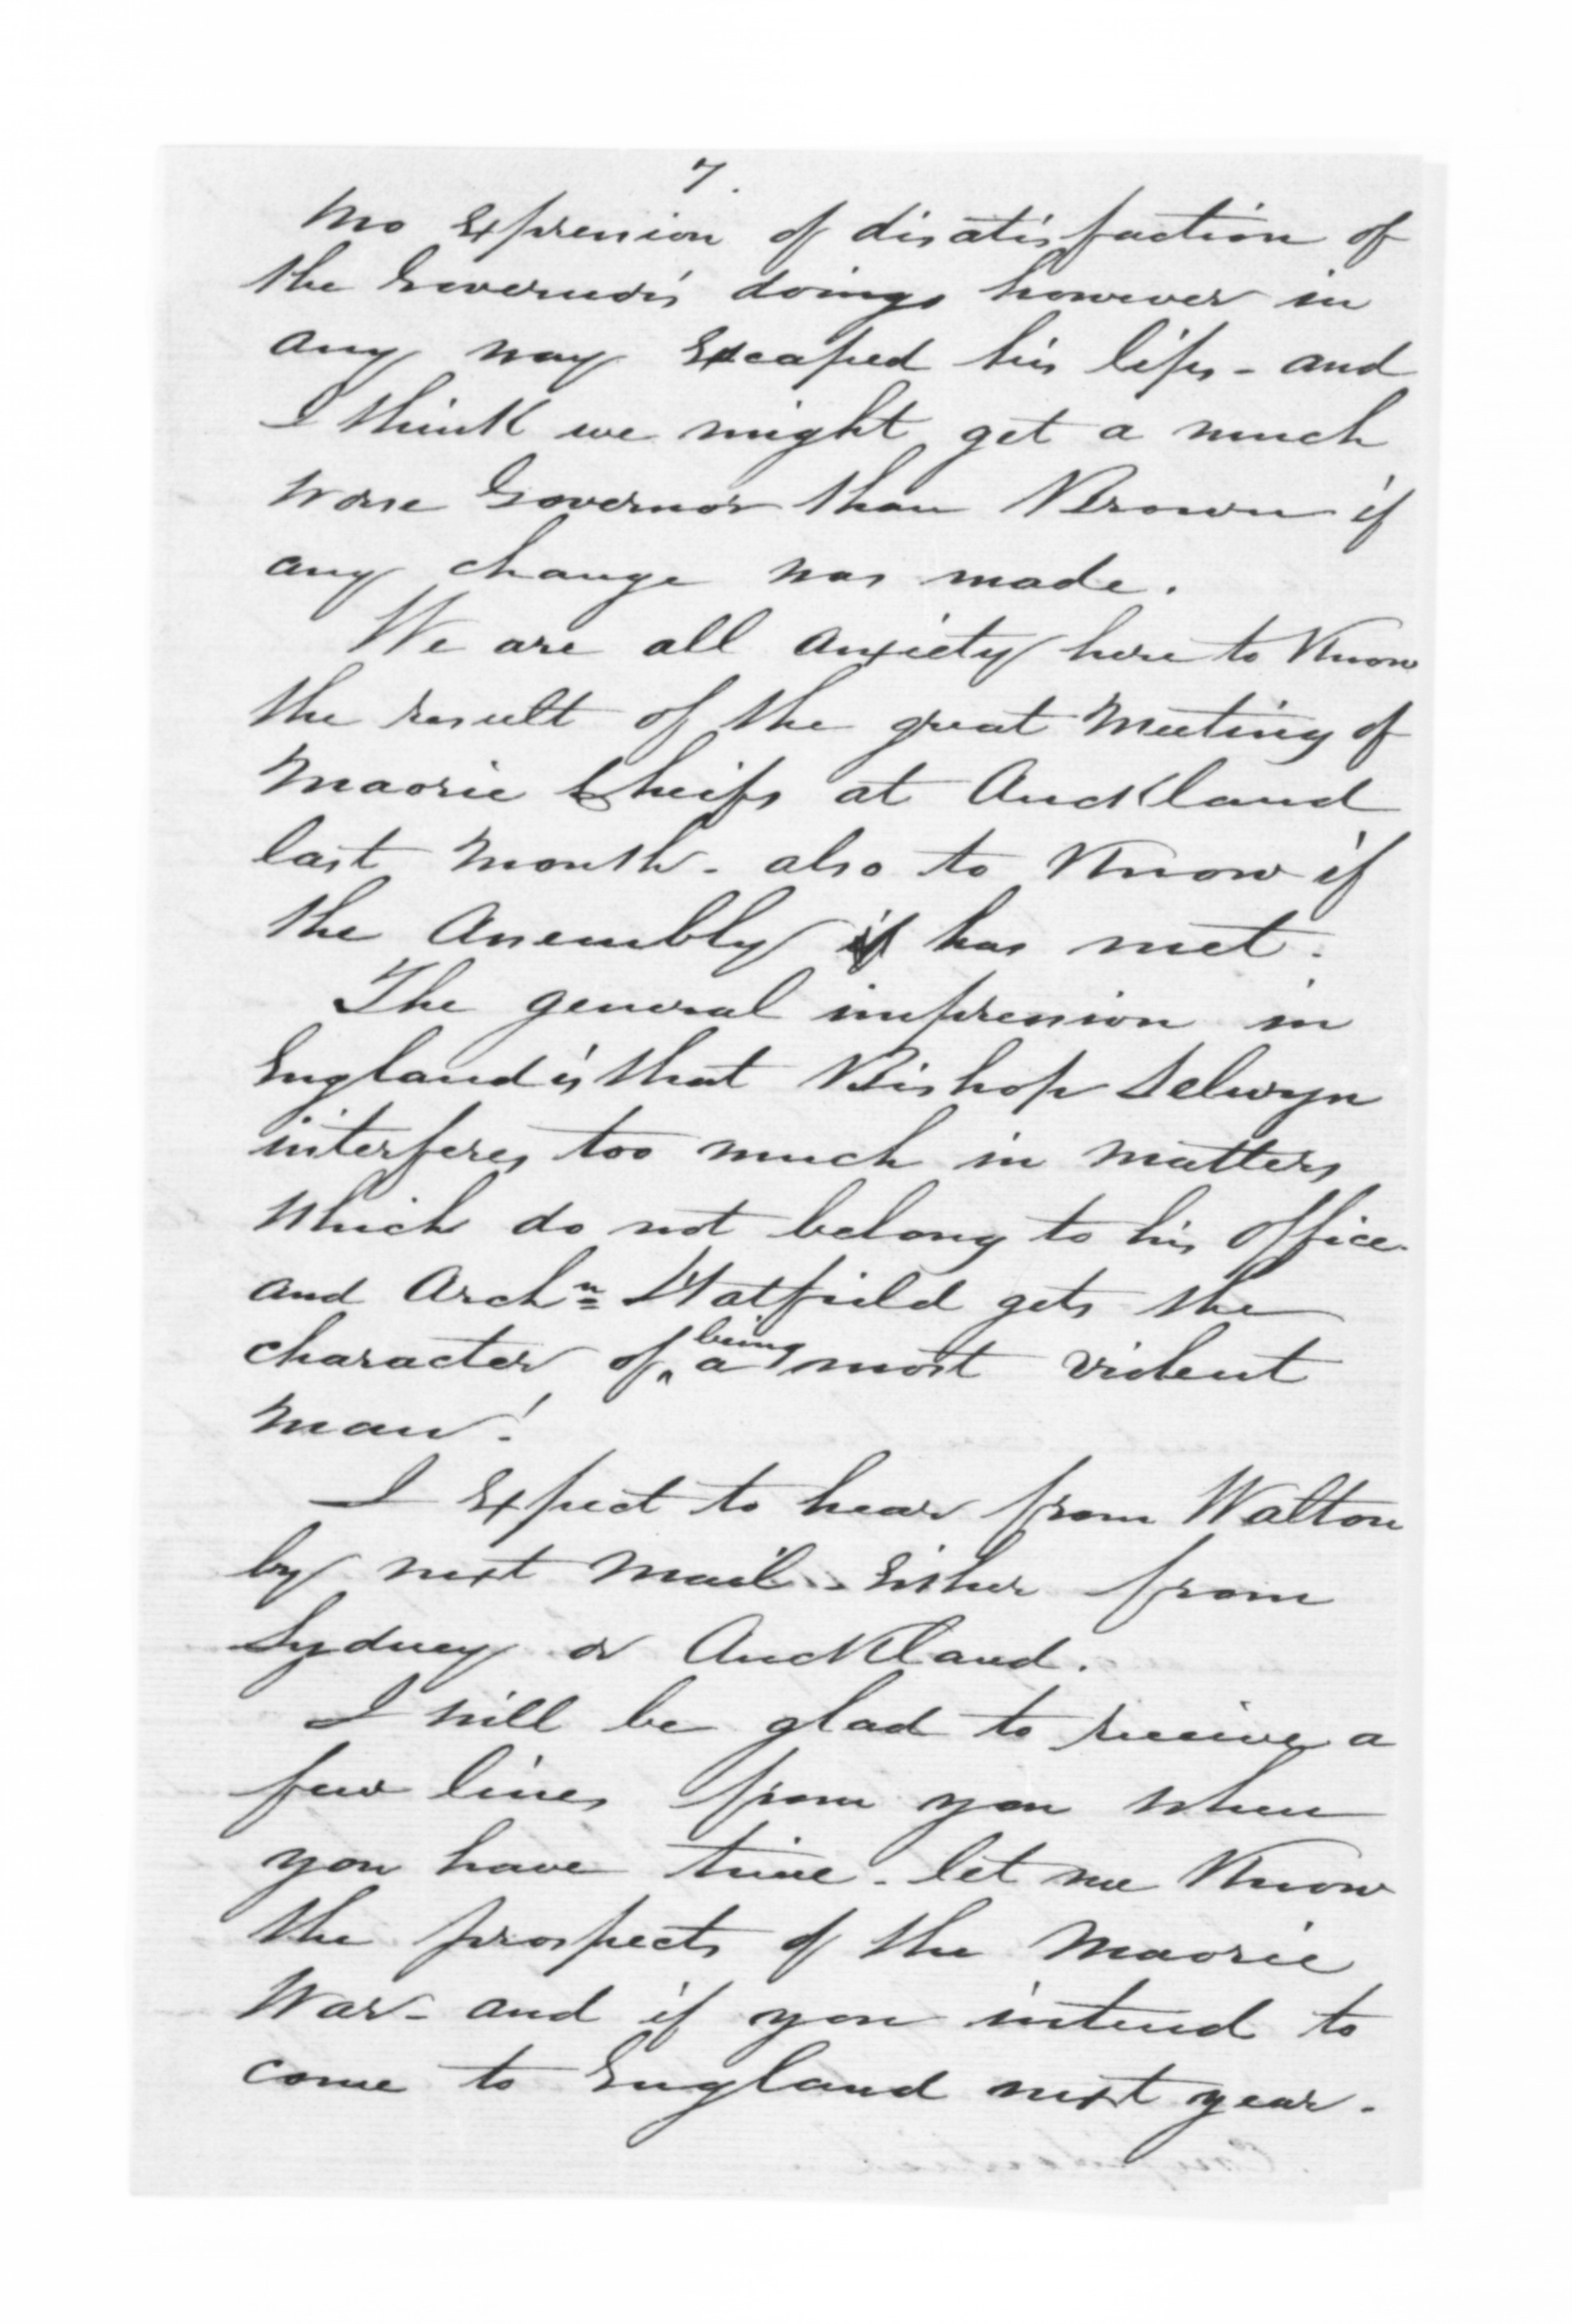 7.
No Expression of disatisfaction of
the Governor's doings however in
any way Escaped his lips - and
I think we might get a much
worse Governor than Brown if
any change was made.
We are all anxiety here to Know
the result of the great Meeting of
Maorie Cheifs at Auckland
last Month - also to Know if
the Assembly if has met.
The general impression in
England is that Bishop Selwyn
interferes too much in matters
which do not belong to his Office.
and Archn Hatfield gets the
character of being a most violent
man!
I Expect to hear from Walton
by next Mail - Either from
Sydney or Auckland.
I will be glad to receive a
few lines from you when
you have time - let me Know
the prospects of the Maorie
War - and if you intend to
come to England next year -